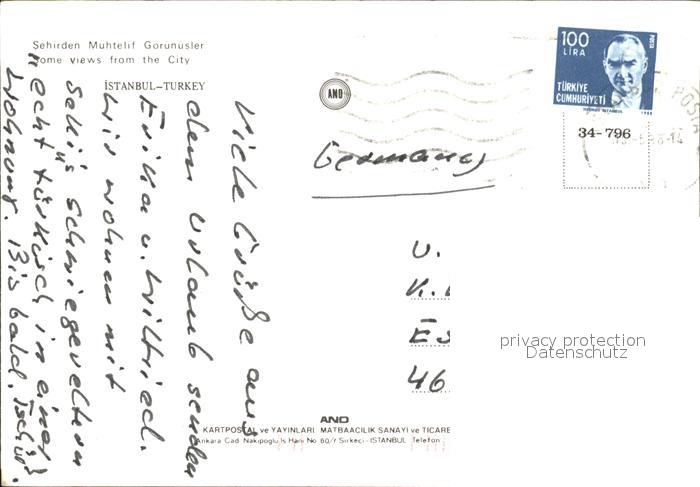 Şehirden Muhtelif Görünüşler
Some views from the City
İSTANBUL-TURKEY
Viele Grüße aus
dem Urlaub senden
Erika u. Wiltried.
Wir wohnen mit
Sekis Schwiegereltern
"echt türkisch" in einer
Wohnung. Bis bald. Tschüs.
AND
Germany
100
LIRA
POSTA
TÜRKİYE
CUMHURİYETİ
34-796
U.
K.
46
privacy protection
Datenschutz
AND
KARTPOSTAL ve YAYINLARI MATBAACILIK SANAYİ ve TİCARE
Ankara Cad. Nakipoğlu İş Hanı No 60/7 Sirkeci-İSTANBUL Telefon